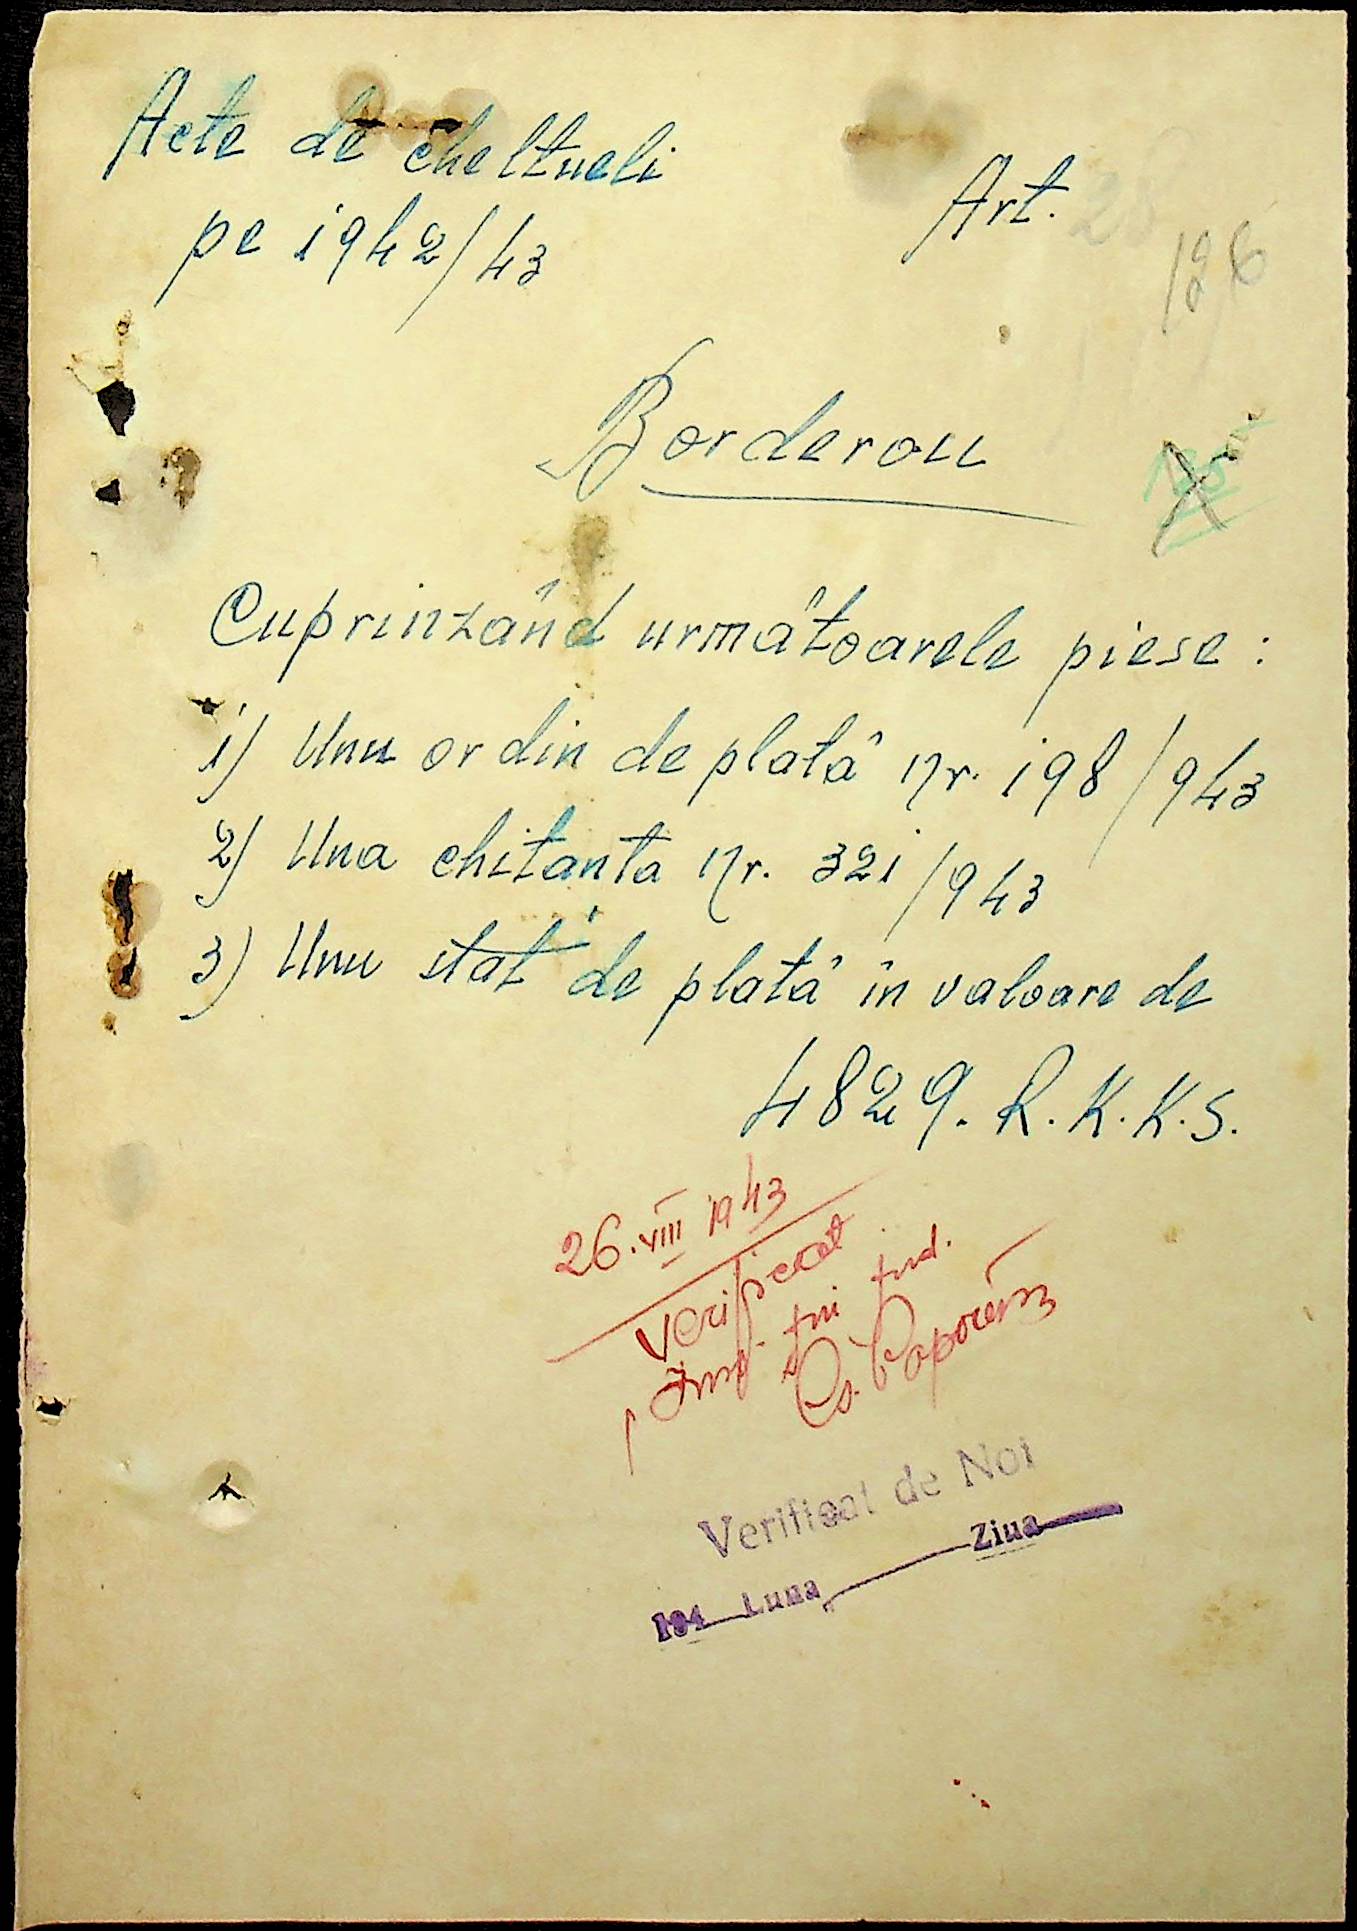 Acte de cheltueli
pe 1942/43
Art. 28
126
Borderou
Cuprinzând urmâtoarele piese :
1) Unu ordin de platâ nr. 198/943
2) Una chitanta nr. 321/943
3) Unu stat de platâ în valoare de
4829. R.K.K.S.
26.VIII 1943
Verificat
Verificat de Noi
194 Luna Ziua